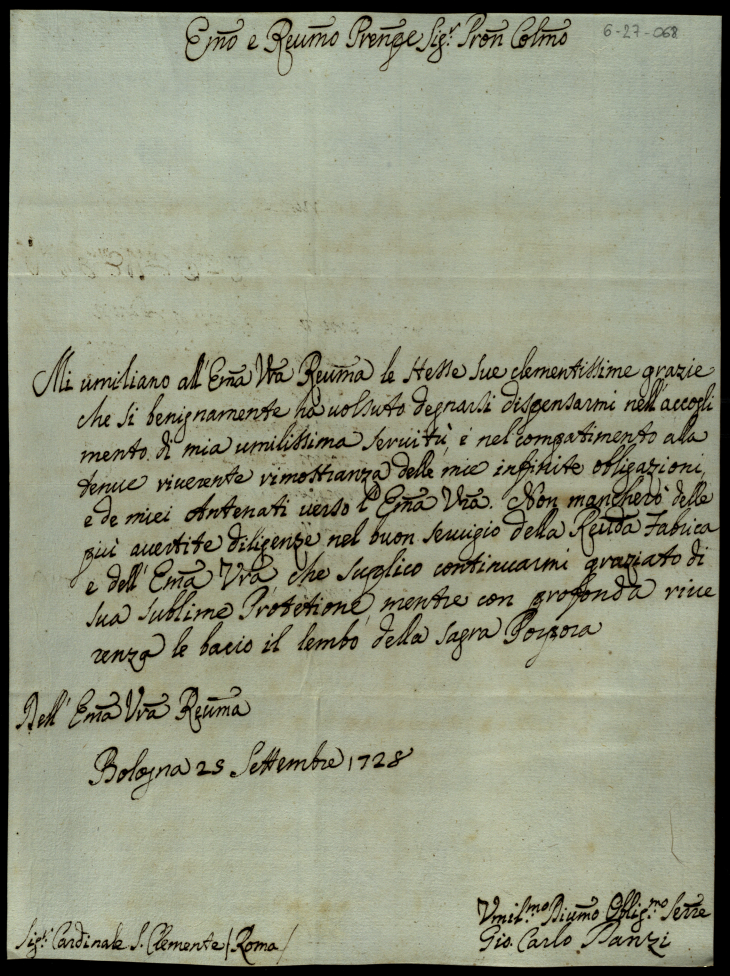 Emõ e Reumõ Prenpe Sig.r Pron Colmõ
6-27-068
Mi umiliano all'Emã Vrã Reumã le stesse sue clementissime grazie
che si benignamente ha uolsuto degnarsi dispensarmi nell'accogli
mento di mia umilissima seruitù, e nel compatimento alla
tenue riuerente rimostranza delle mie infinite obligazioni,
e de miei Antenati uerso l'Emã Vrã. Non mancherò delle
più auertite diligenze nel buon seruigio della Reuda Fabrica
e dell'Emã Vrã che supplico continuarmi graziato di
sua sublime Protetione, mentre con profonda riue
renza le bacio il lembo della sagra Porpora
Dell'Emã Vrã Reumã
Bologna 25 Settembre 1728
Vmil.mo Diumõ Oblig.mo Serre
Sig.r Cardinale S. Clemente / Roma /
Gio. Carlo Panzi